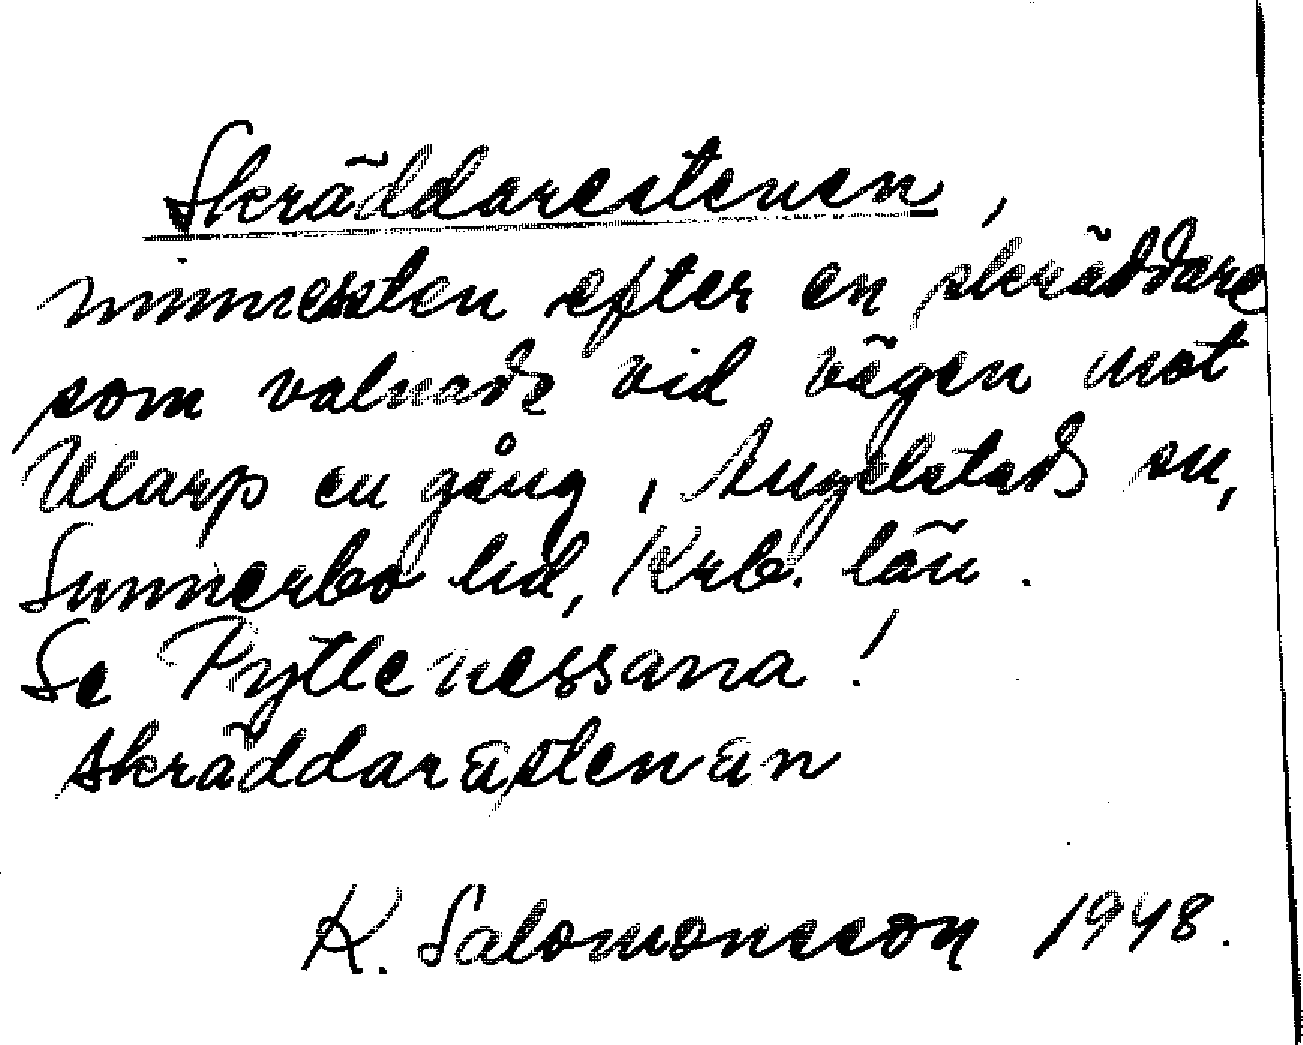 Skräddarestenen,
minnessten efter en skräddare
som valnade vid vägen mot
Ularp en gång, Angelstads sn,
Sunnerbo hd, Krb. län.
Se Pyttenessana!
skräddarastenan
K. Salomonsson 1948.